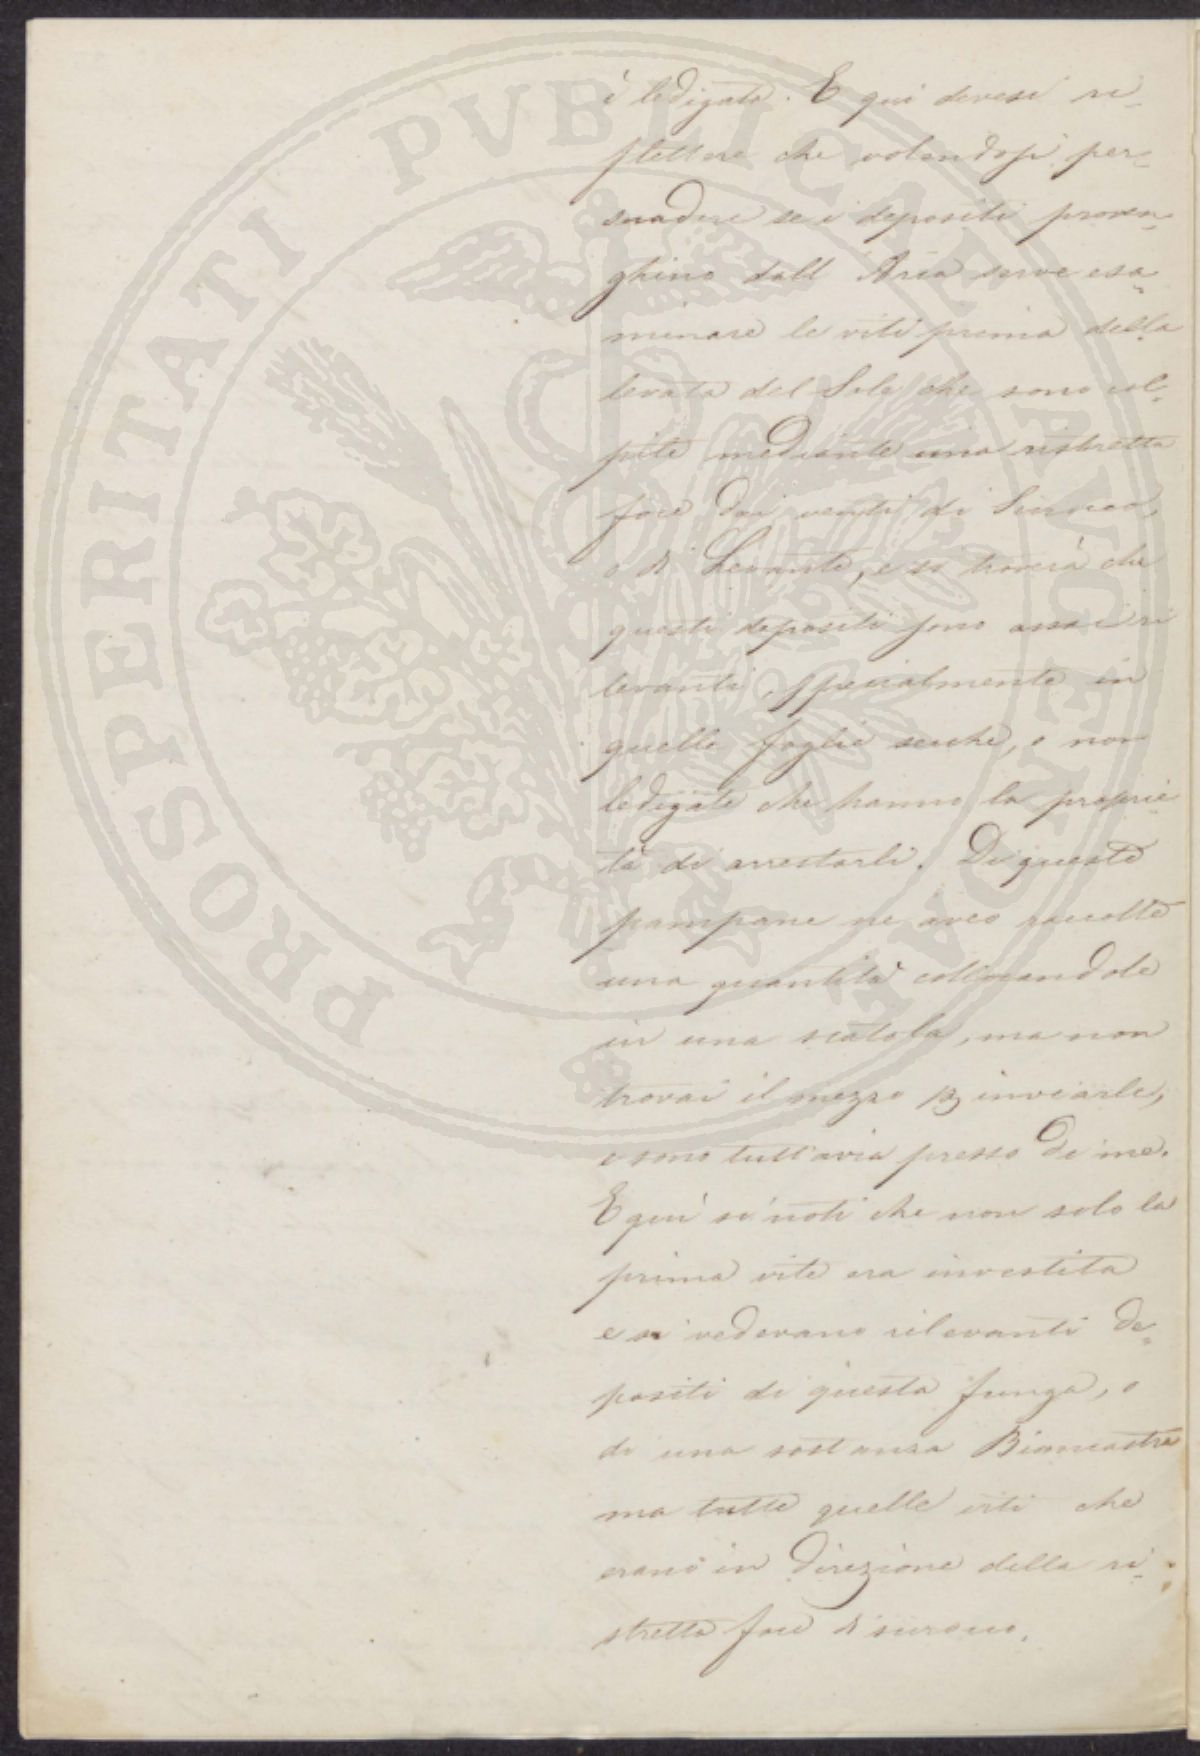 è ledigata. E qui devesi ri-
flettere che volendosi per-
suadere se i depositi proven-
ghino dall'Aria serve esa-
minare le viti prima della
levata del Sole che sono col-
pite mediante una ristretta
foce dai venti di Sirocco,
o di Levante, e si troverà che
questi depositi sono assai ri
levanti, specialmente in
quelle foglie secche, o non
ledigate che hanno la proprie-
tà di arrestarli. Di queste
pampane ne aveo raccolte
una quantità collocandole
in una scatola, ma non
trovai il mezzo p inviarle,
e sono tutt'avia presso di me.
E qui si noti che non solo la
prima vite era investita
e si vedevano rilevanti de-
positi di questa funga, o
di una sostanza Biancastra
ma tutte quelle viti che
erano in direzione della ri-
stretta foce di sirocco.
PROSPERITATI PVBLICAE AVGENDAE